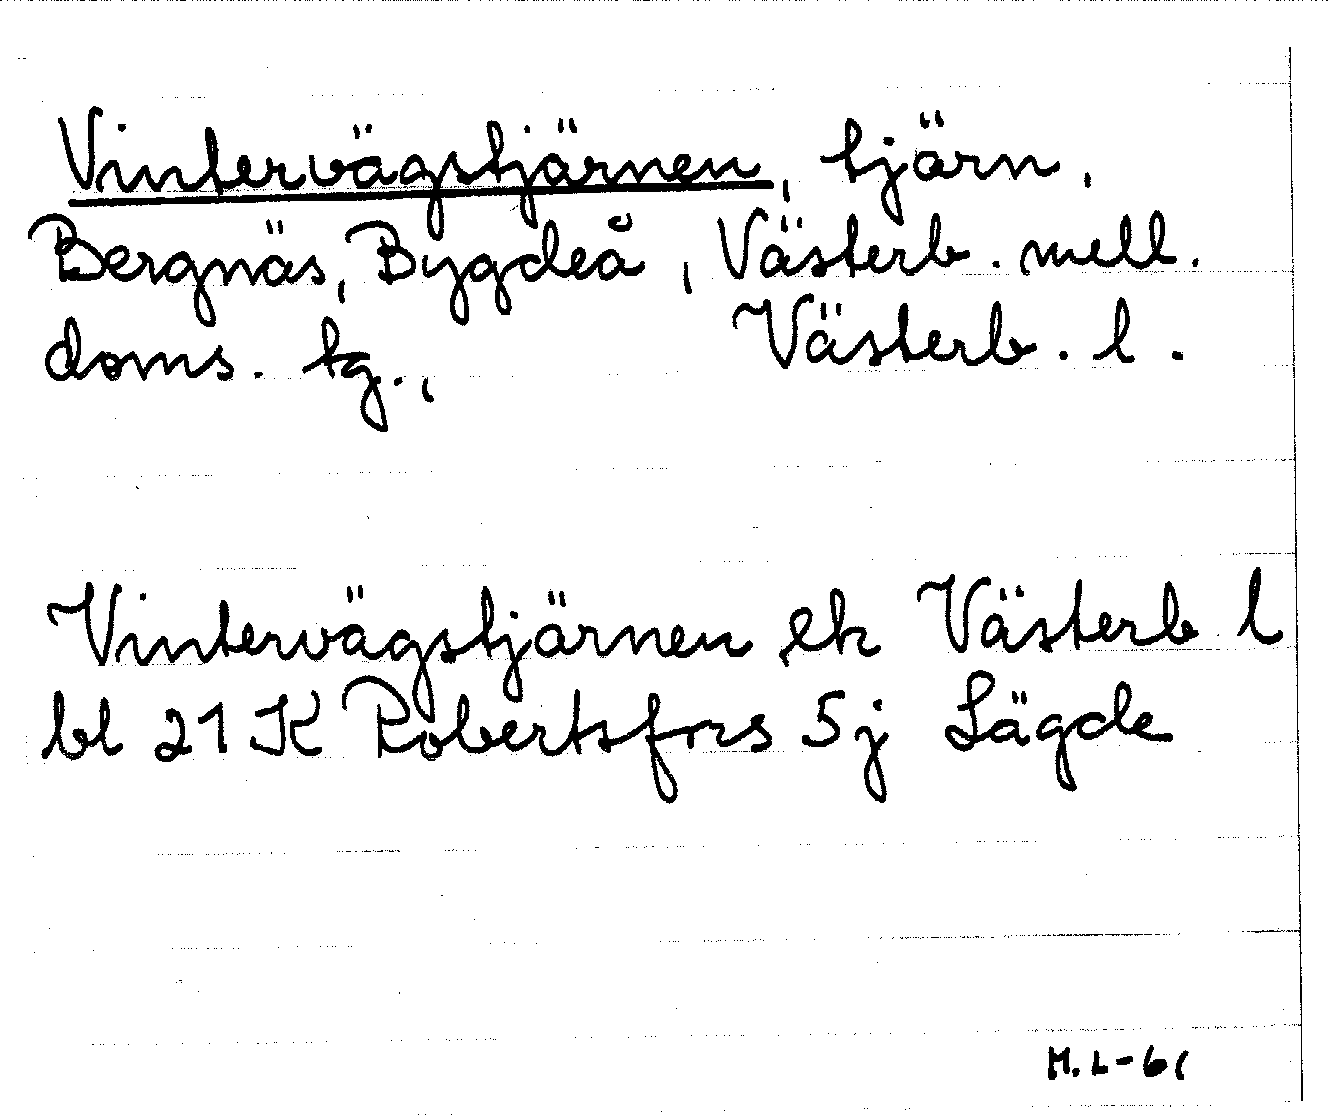 Vintervägstjärnen, tjärn,
Bergnäs, Bygdeå, Västerb. mell.
doms. tg., Västerb. l.
Vintervägstjärnen ek Västerb l
bl 21 K Robertsfors 5j Lägde
M.L-61